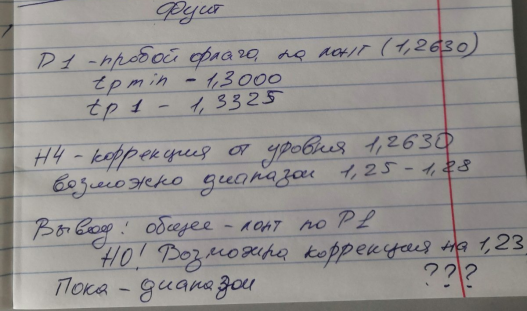 Фунт
D1 - пробой флага на лонг (1,2630)
tp min - 1,3000
tp 1 - 1,3325
H4 - коррекция от уровня 1,2630
возможно диапазон 1,25 - 1,28
Вывод: общее - лонг по D1
НО! Возможна коррекция на 1,23
Пока - диапазон ???